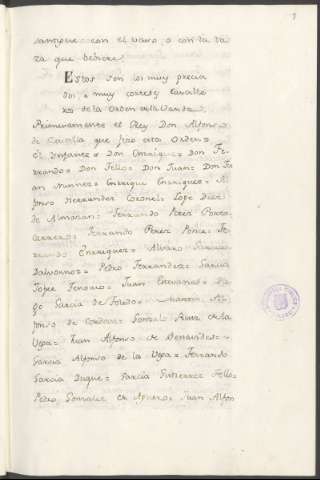 santigue con el vaso o con la ta
za que bebiere.
Estos son los muy precia
dos e muy corteses Cavalle
ros de la Orden de la Vanda.
Primeramente el Rey Don Alfonso
de Castilla que fizo esta Orden =
El Infante = Don Enrique = Don Fe-
rnando = Don Tello = Don Juan = Don Ju
an Nuñez = Enrique Enriquez = Al
fonso Hernandez Coronel = Lope Diaz
de Almazan = Fernando Perez Porto
carrero = Fernando Perez Ponce = Fe-
rnando Enriquez = Alvaro Garcia
Dalvornoz = Pedro Fernandez = Garcia
Jofre Tenorio = Juan Estevanez = Di
go Garcia de Toledo = Martin Al
fonso de Cordova = Gonzalo Ruiz de la
Vega = Juan Alfonso de Benavides =
Garcia Alfonso de la Vega = Fernando
Garcia Duque = Garcia Gutierrez Tello =
Pedro Gonzalez de Aguero = Juan Alfon